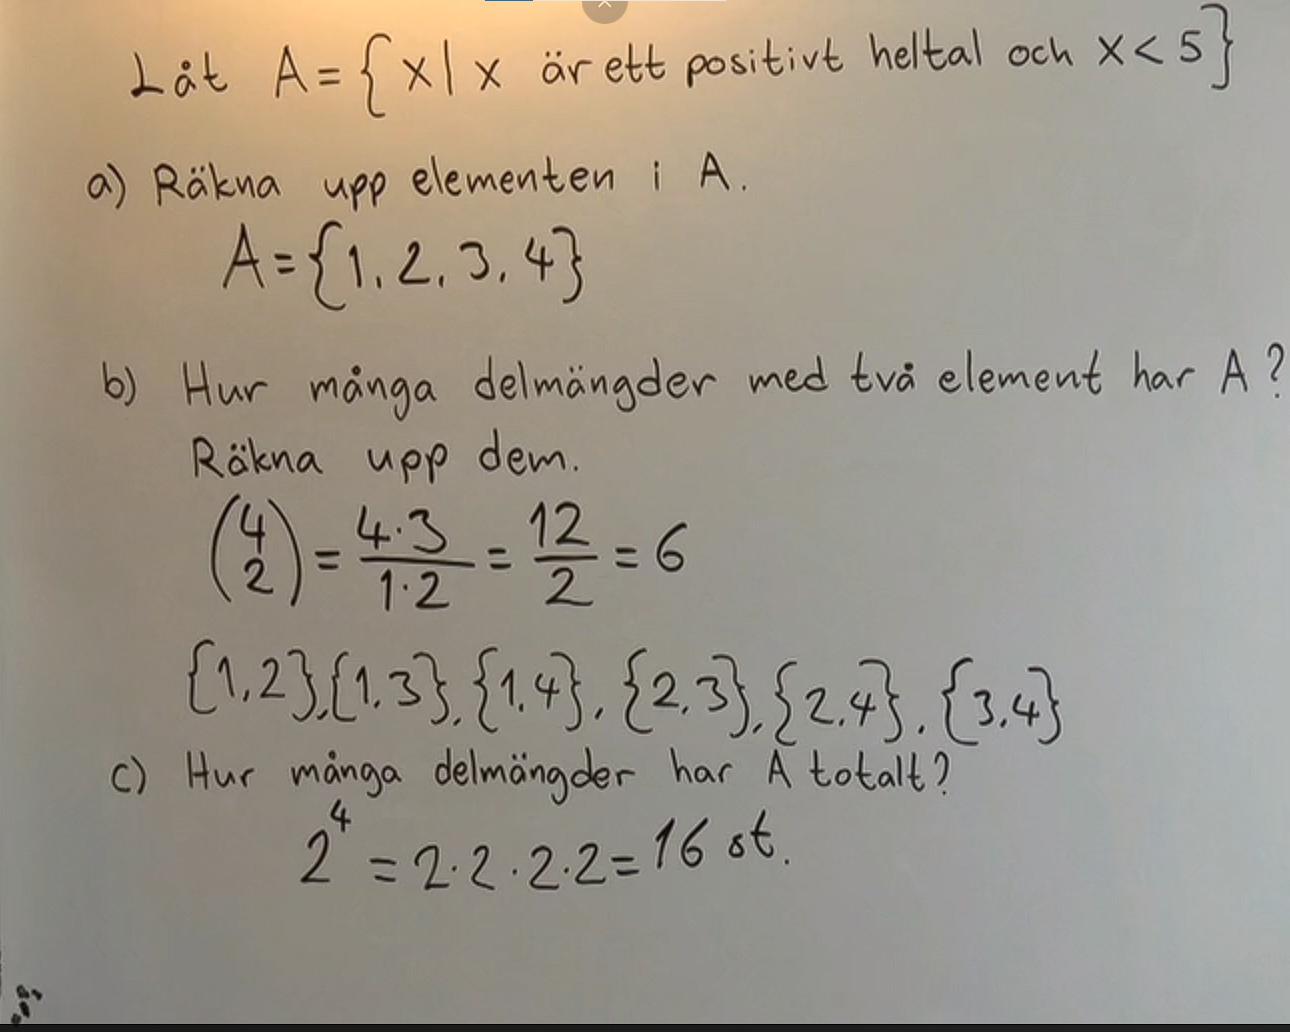 Låt A = { x | x är ett positivt heltal och x < 5 }
a) Räkna upp elementen i A.
A = {1, 2, 3, 4}
b) Hur många delmängder med två element har A?
Räkna upp dem.
(4 2) = 4·3 / 1·2 = 12 / 2 = 6
{1,2}, {1,3}, {1,4}, {2,3}, {2,4}, {3,4}
c) Hur många delmängder har A totalt?
2⁴ = 2·2·2·2 = 16 st.